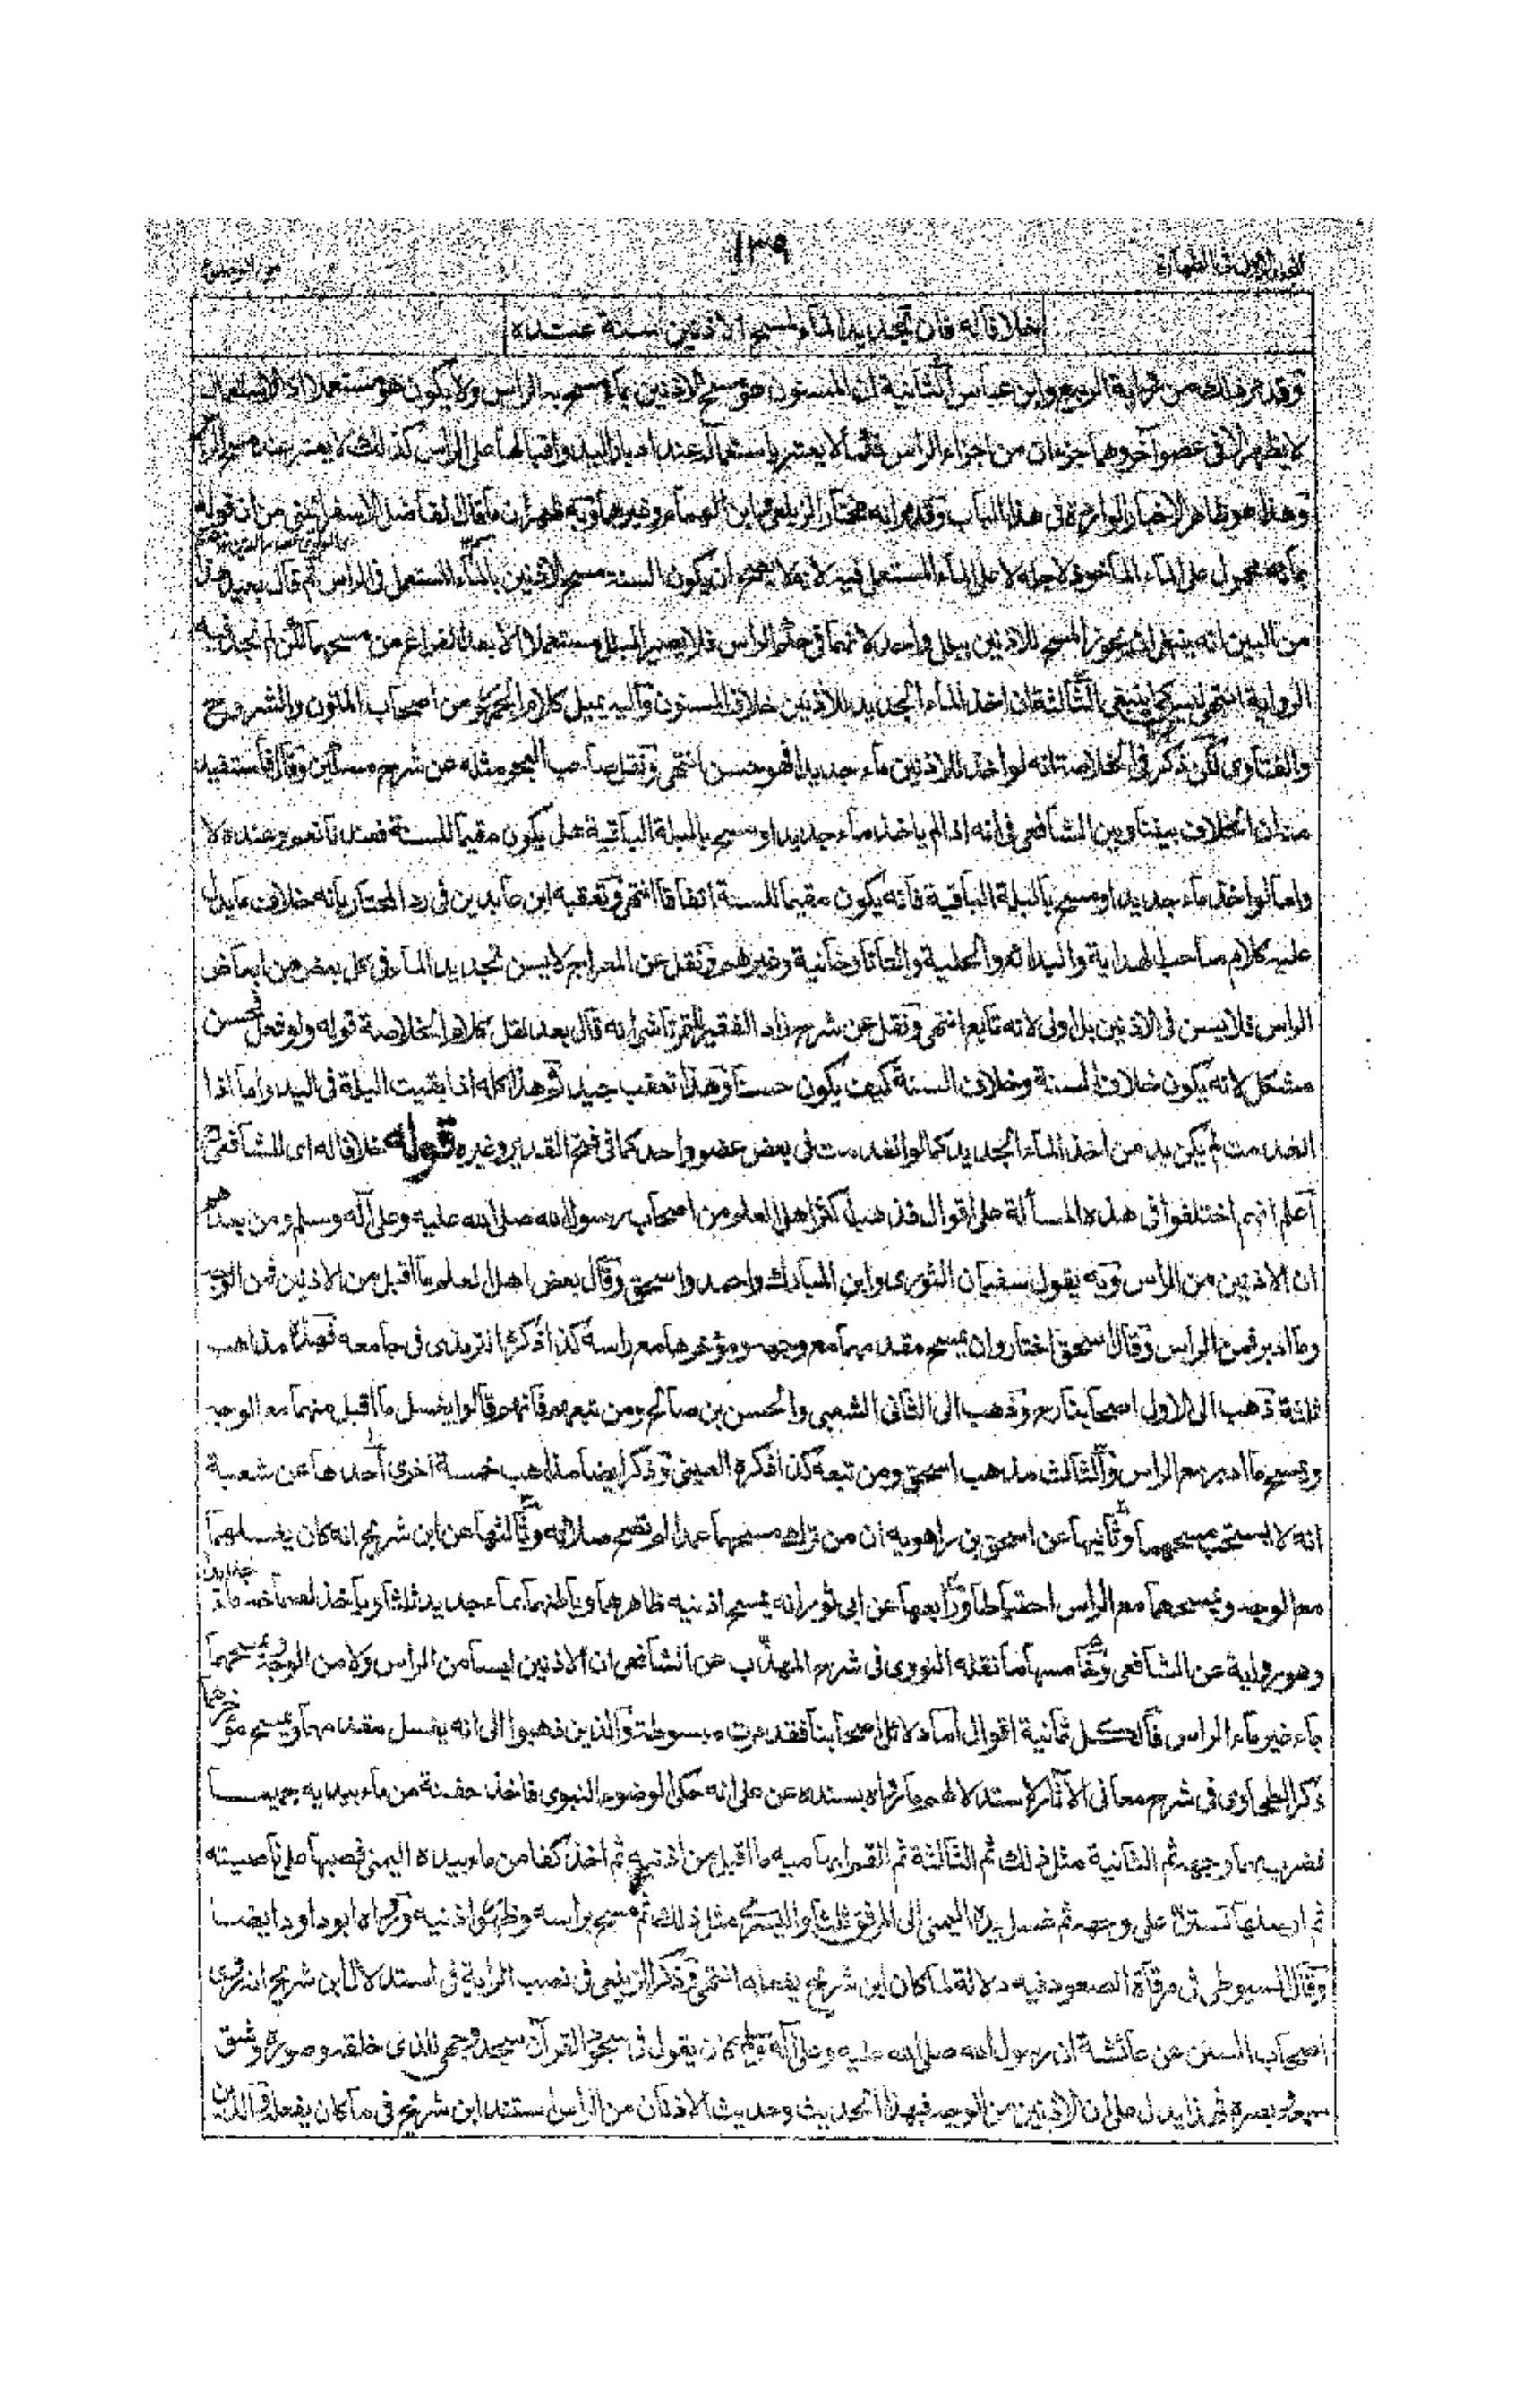 ١٣٩
خلافا له فان تجديد الماء لمسح الاذنين سنة عنده
وقد مر ذلك من رواية الربيع وابن عباس الثانية ان المسنون هو مسح الاذنين بماء مسح به الراس ولا يكون هو مستعملا اذ الاستعمال
لا يظهر الا فى عضو آخر وهما جزءان من اجزاء الراس فكما لا يعتبر باستعماله عند ادبار اليد واقبالها على الراس كذلك لا يعتبر عند
وهذا هو ظاهر الاخبار الواردة فى هذا الباب وقد مر انه مختار الزيلعى وابن الهمام وغيرهما وبه ظهر ان ما قال الفاضل الاسفرائنى من ان قوله
بمائه محمول على الماء الماخوذ لاجله لا على الماء المستعمل فيه لانه لا يصح ان يكون السنة مسح الاذنين بالماء المستعمل فى الراس ثم قال بعيد
من البين انه ينبغى ان يجوز المسح للاذنين ببلل واحد لانهما فى حكم الراس فلا يصير البلل مستعملا الا بعد الفراغ من مسحهما لكن لم نجد فيه
الرواية انتهى ليس كما ينبغى الثالثة ان اخذ الماء الجديد للاذنين خلاف المسنون واليه يميل كلام الجمهور من اصحاب المتون والشروح
والفتاوى لكن ذكر فى الخلاصة انه لو اخذ للاذنين ماء جديدا فهو حسن انتهى ونقل صاحب البحر مثله عن شرح مسكين وقال فاستفيد
منه ان الخلاف بيننا وبين الشافعى فى انه اذا لم ياخذ ماء جديدا ومسح بالبلة الباقية هل يكون مقيما للسنة فعندنا نعم وعنده لا
واما لو اخذ ماء جديدا ومسح بالبلة الباقية فانه يكون مقيما للسنة اتفاقا انتهى وتعقبه ابن عابدين فى رد المحتار بانه خلاف ما يدل
عليه كلام صاحب الهداية والبدائع والحلية والتاتارخانية وغيرهم ونقل عن المعراج لا يسن تجديد الماء فى كل بعض من ابعاض
الراس فلا يسن فى الاذنين بل اولى لانه تابع انتهى ونقل عن شرح زاد الفقير للتمرتاشى انه قال بعد نقل كلام الخلاصة قوله ولو فعل فحسن
مشكل لانه يكون خلاف السنة وخلاف السنة كيف يكون حسنا وهذا تعقب جيد وهذا كله اذا بقيت البلة فى اليد واما اذا
انعدمت لم يكن بد من اخذ الماء الجديد كما لو انعدمت فى بعض عضو واحد كما فى فتح القدير وغيره قوله خلافا له اى للشافعى
اعلم انهم اختلفوا فى هذه المسألة على اقوال فذهب اكثر اهل العلم من اصحاب رسول الله صلى الله عليه وعلى آله وسلم ومن بعدهم
ان الاذنين من الراس وبه يقول سفيان الثورى وابن المبارك واحمد واسحق وقال بعض اهل العلم ما اقبل من الاذنين فمن الوجه
وما ادبر فمن الراس وقال اسحق اختار ان يمسح مقدمهما مع وجهه ومؤخرهما مع راسه كذا ذكره الترمذى فى جامعه فهذه مذاهب
ثلثة ذهب الى الاول اصحابنا وذهب الى الثانى الشعبى والحسن بن صالح ومن تبعهم فانهم قالوا يغسل ما اقبل منهما مع الوجه
ويمسح ما ادبر مع الراس والثالث مذهب اسحق ومن تبعه كذا ذكره العينى وذكر ايضا مذاهب خمسة اخرى احدها عن شعبة
انه لا يستحب مسحهما وثانيها عن اسحق بن راهويه ان من ترك مسحهما عمدا لم تصح صلاته وثالثها عن ابن شريح انه كان يغسلهما
مع الوجه ويمسحهما مع الراس احتياطا ورابعها عن ابى ثور انه يمسح اذنيه ظاهرهما وباطنهما بماء جديد ثلثا وياخذ لصماخه ماء جديدا
وهو رواية عن الشافعى وخامسها ما نقله النووى فى شرح المهذب عن الشافعى ان الاذنين ليسا من الراس ولا من الوجه ويمسحهما
بماء غير ماء الراس فالكل ثمانية اقوال اما دلائل اصحابنا فقد مرت مبسوطة والذين ذهبوا الى انه يغسل مقدمهما ويمسح مؤخرهما
ذكر الطحاوى فى شرح معانى الآثار لاستدلالهم ما رواه بسنده عن على انه حكى الوضوء النبوى فاخذ حفنة من ماء بيديه جميعا
فضرب بهما وجهه ثم الثانية مثل ذلك ثم الثالثة ثم القم ابهاميه ما اقبل من اذنيه ثم اخذ كفا من ماء بيده اليمنى فصبها على ناصيته
ثم ارسلها تستن على وجهه ثم غسل يده اليمنى الى المرفق ثلثا واليسرى مثل ذلك ثم مسح براسه وظهور اذنيه ورواه ابو داود ايضا
وقال السيوطى فى مرقاة الصعود فيه دلالة لما كان ابن شريح يفعله انتهى وذكر الزيلعى فى نصب الراية فى استدلال ابن شريح انه روى
اصحاب السنن عن عائشة ان رسول الله صلى الله عليه وعلى آله وسلم كان يقول فى سجود القرآن سجد وجهى للذى خلقه وصوره وشق
سمعه وبصره فهذا يدل على ان الاذنين من الوجه فبهذا الحديث وحديث الاذنان من الراس استند ابن شريح فى ما كان يفعله والذين